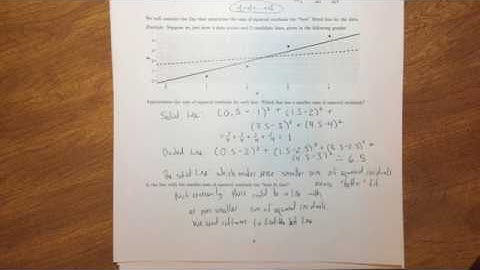 We will consider the line that minimizes the sum of squared residuals the "best" fitted line for the data.
Example: Suppose we just have 4 data points and 2 candidate lines, given in the following graph:
Approximate the sum of squared residuals for each line. Which line has a smaller sum of squared residuals?
Solid Line: (0.5 - 1)² + (1.5-2)² +
(3.5-3)² + (4.5-4)²
= ¼ + ¼ + ¼ + ¼ = 1
Dashed Line: (0.5-2)² + (1.5-2.5)² +
= 6.5
The solid line which makes sense smaller sum of squared residuals
means "better" fit
Is the line with the smaller sum of squared residuals the "best fit line"?
Not necessarily there could be a line with
an even smaller sum of squared residuals
We need software to find the best line